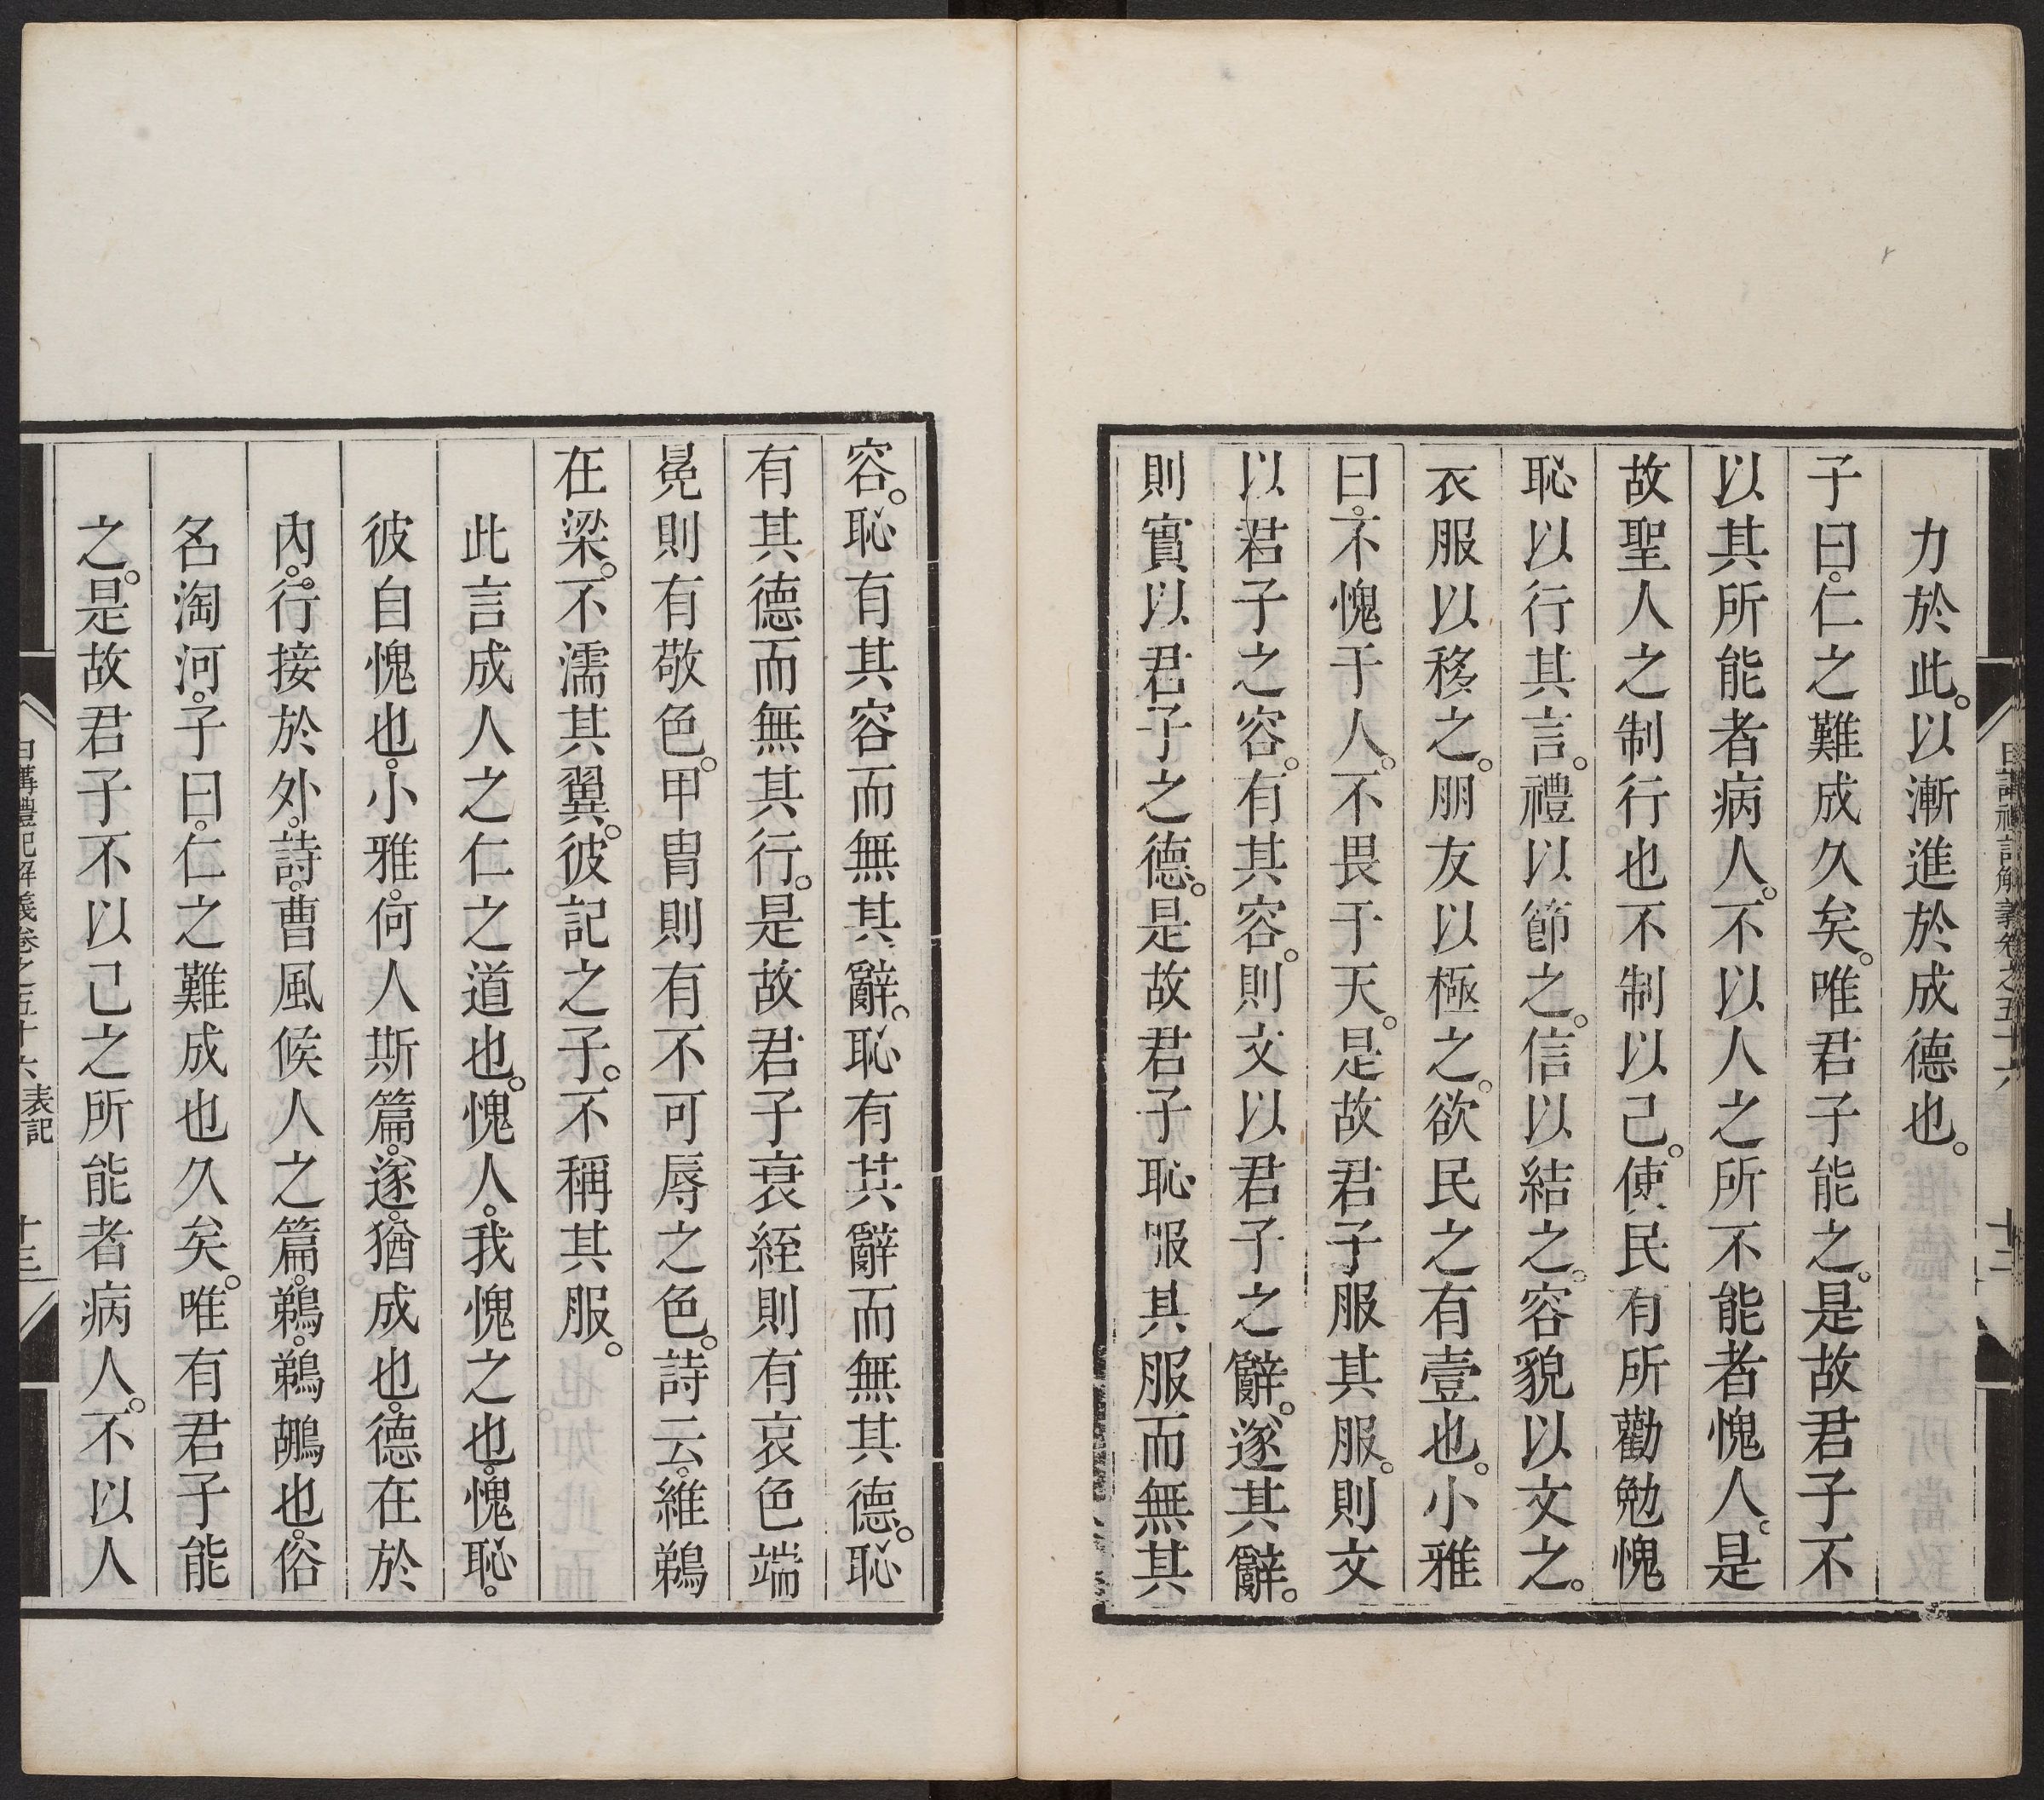 日講禮記解義卷之五十六
十二
力於此。以漸進於成德也。
子曰。仁之難成久矣。唯君子能之。是故君子不
以其所能者病人。不以人之所不能者愧人。是
故聖人之制行也不制以己。使民有所勸勉愧
恥以行其言。禮以節之。信以結之。容貌以文之。
衣服以移之。朋友以極之。欲民之有壹也。小雅
曰。不愧于人。不畏于天。是故君子服其服。則文
以君子之容。有其容。則文以君子之辭。遂其辭。
則實以君子之德。是故君子恥服其服而無其
容。恥有其容而無其辭。恥有其辭而無其德。恥
有其德而無其行。是故君子衰絰則有哀色端
冕則有敬色。甲冑則有不可辱之色。詩云。維鵜
在梁。不濡其翼。彼記之子。不稱其服。
此言成人之仁之道也。愧人。我愧之也。愧恥。
彼自愧也。小雅。何人斯篇。遂。猶成也。德在於
內。行接於外。詩。曹風候人之篇。鵜。鵜鶘也。俗
名淘河。子曰。仁之難成也久矣。唯有君子能
之。是故君子不以己之所能者病人。不以人
日講禮記解義卷之五十六 表記
十三